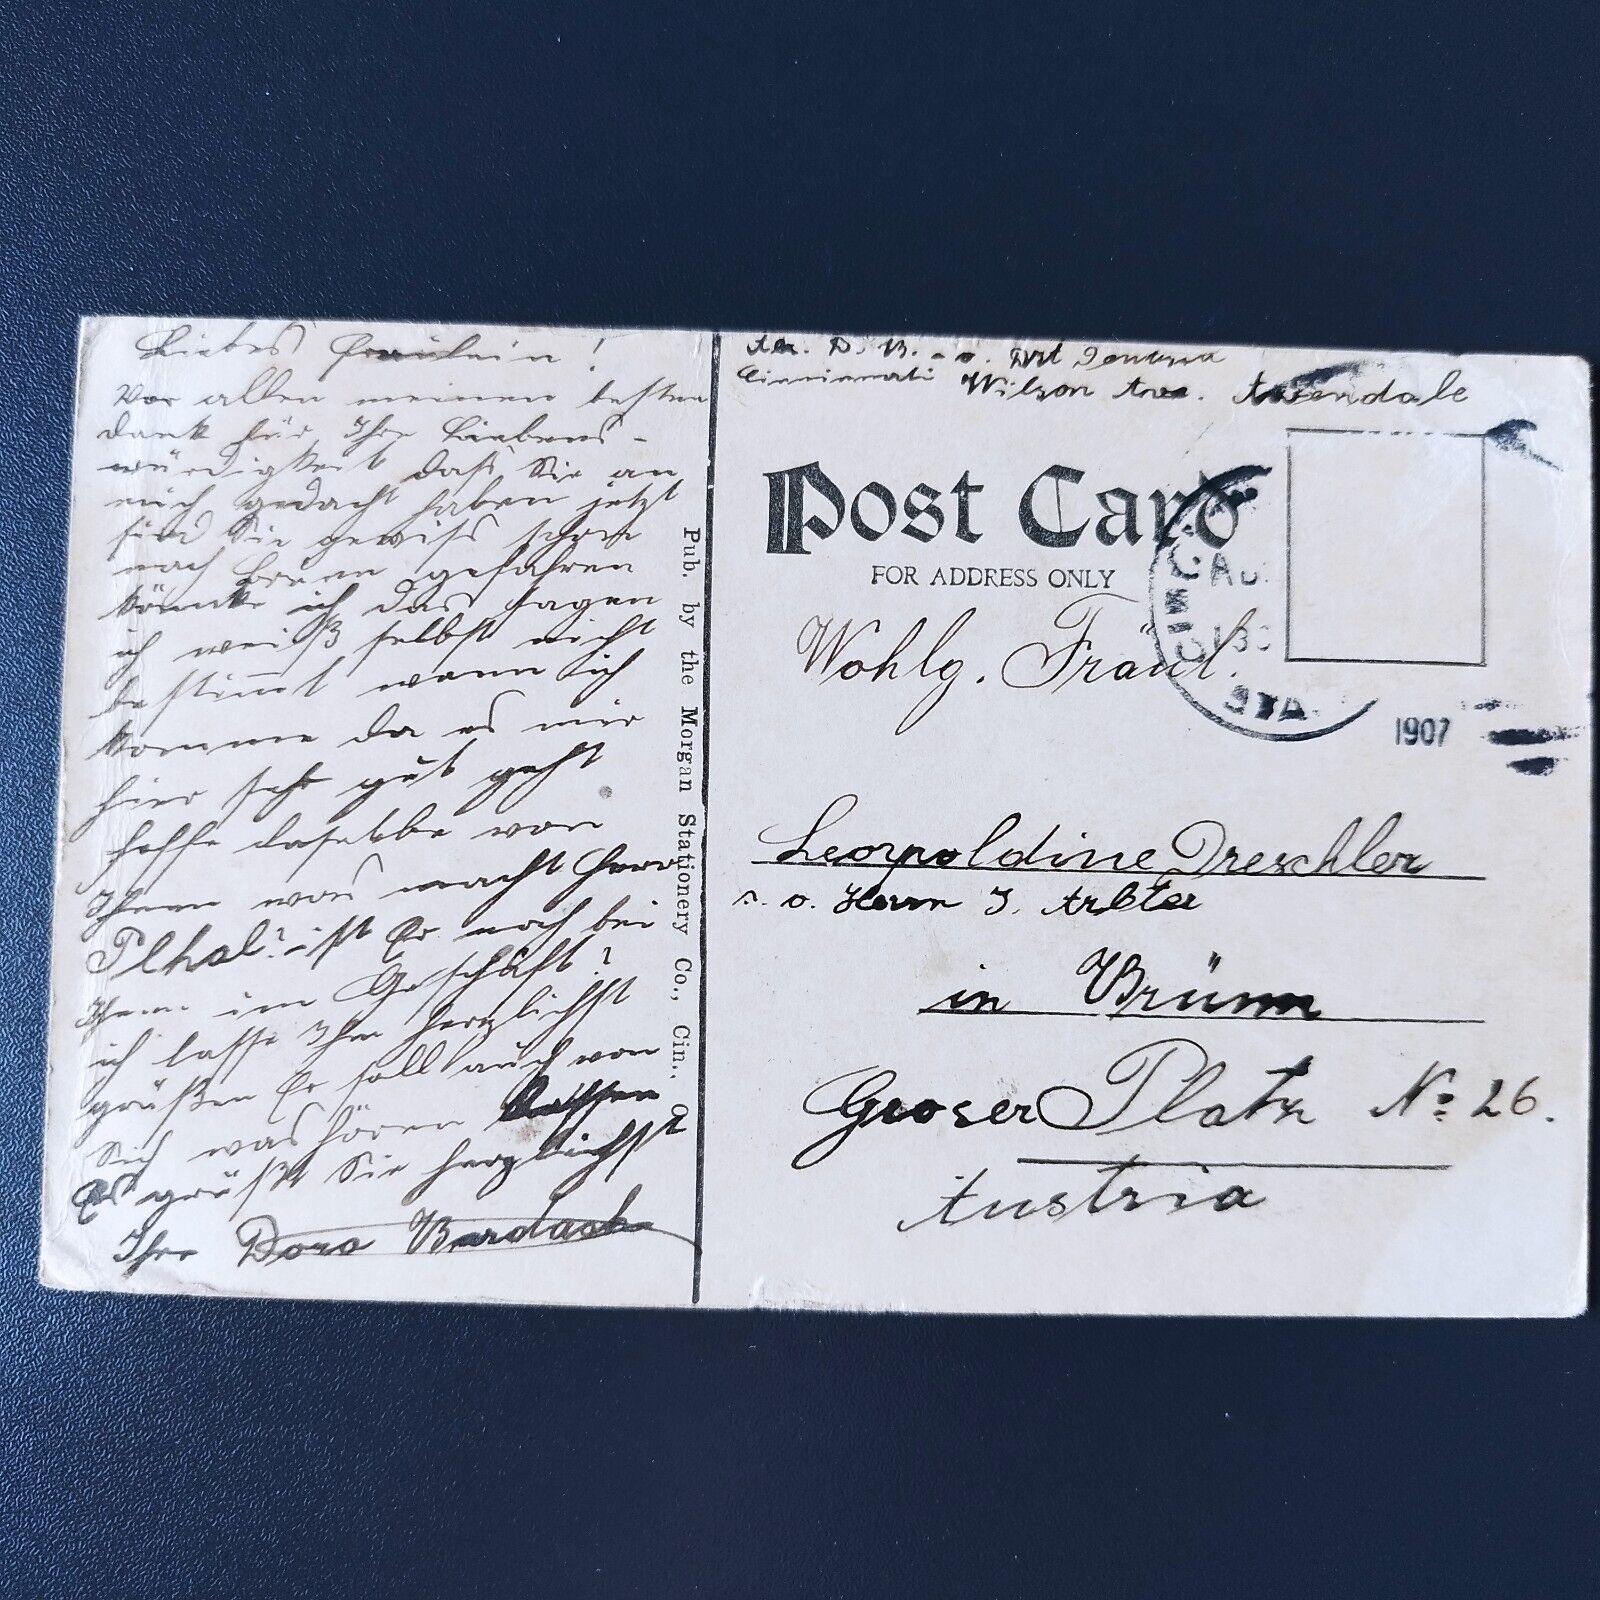 Liebes Fräulein!
Vor allen meinen besten
Dank für Ihre Liebens-
würdigkeit daß Sie an
mich gedacht haben jetzt
sind Sie gewiss schon
nach gefahren
könnte ich das sagen
ich weiß selbst nicht
bestimmt wann ich
komme da es mir
hier sehr gut geht
hoffe dasselbe von
Ihnen was macht Herr
Plhal? ist Er noch bei
Ihnen im Geschäft?
ich lasse Ihn herzlichst
grüßen Er soll auch von
Sich was hören lassen
Es grüßt Sie herzlichst
Ihre Dora Bardach
Pub. by the Morgan Stationery Co., Cin., O.
D. B.
Cincinnati Wilson Ave. Avendale
Post Card
FOR ADDRESS ONLY
CINCI
AU
STA.
1907
Wohlg. Fräul.
Leopoldine Dreschler
Herrn J. Arbter
in Brünn
Groser Platz No 26.
Austria